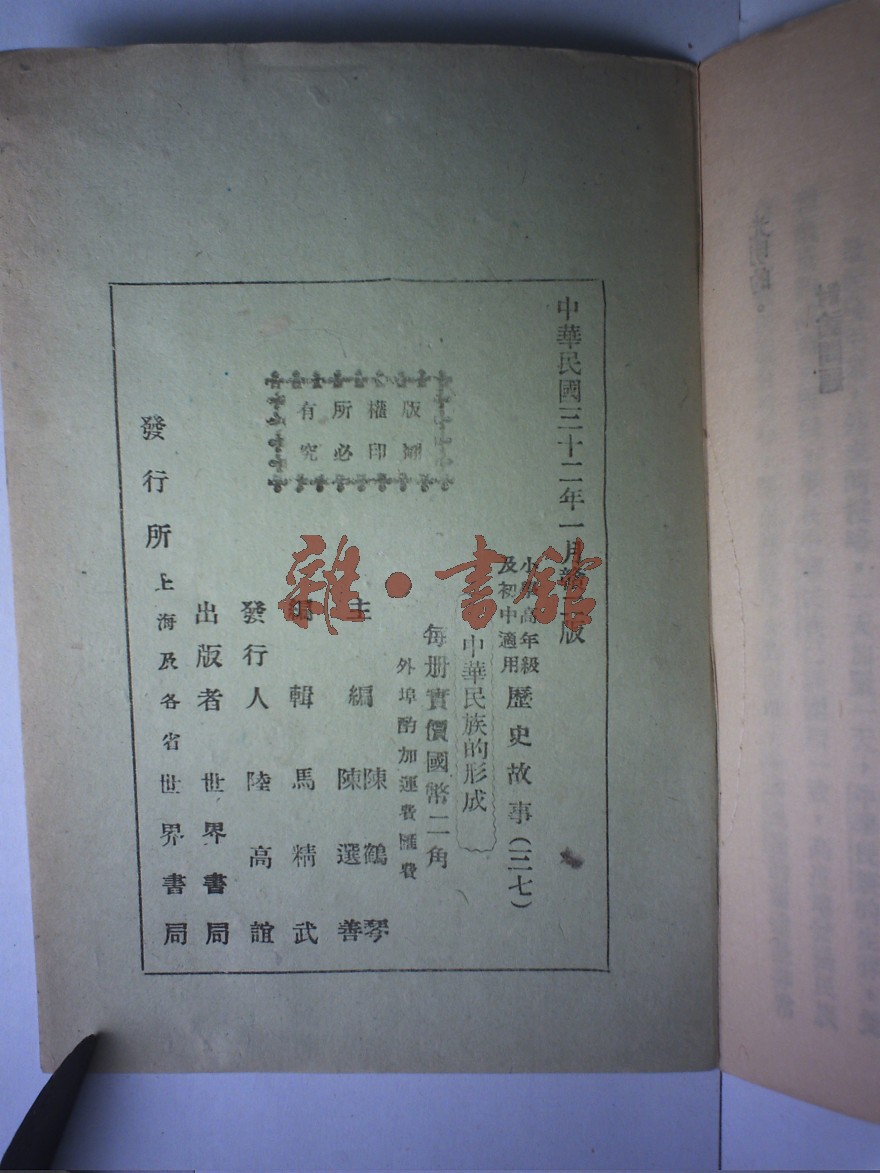 中華民國三十二年一月贛一版
小學高年級
及初中適用
歷史故事(三七)
中華民族的形成
每册實價國幣二角
外埠酌加運費匯費
主編 陳鶴琴
陳選善
編輯 馬精武
發行人 陸高誼
出版者 世界書局
發行所 上海及各省世界書局
版權所有
翻印必究
雜·書館
討論問題